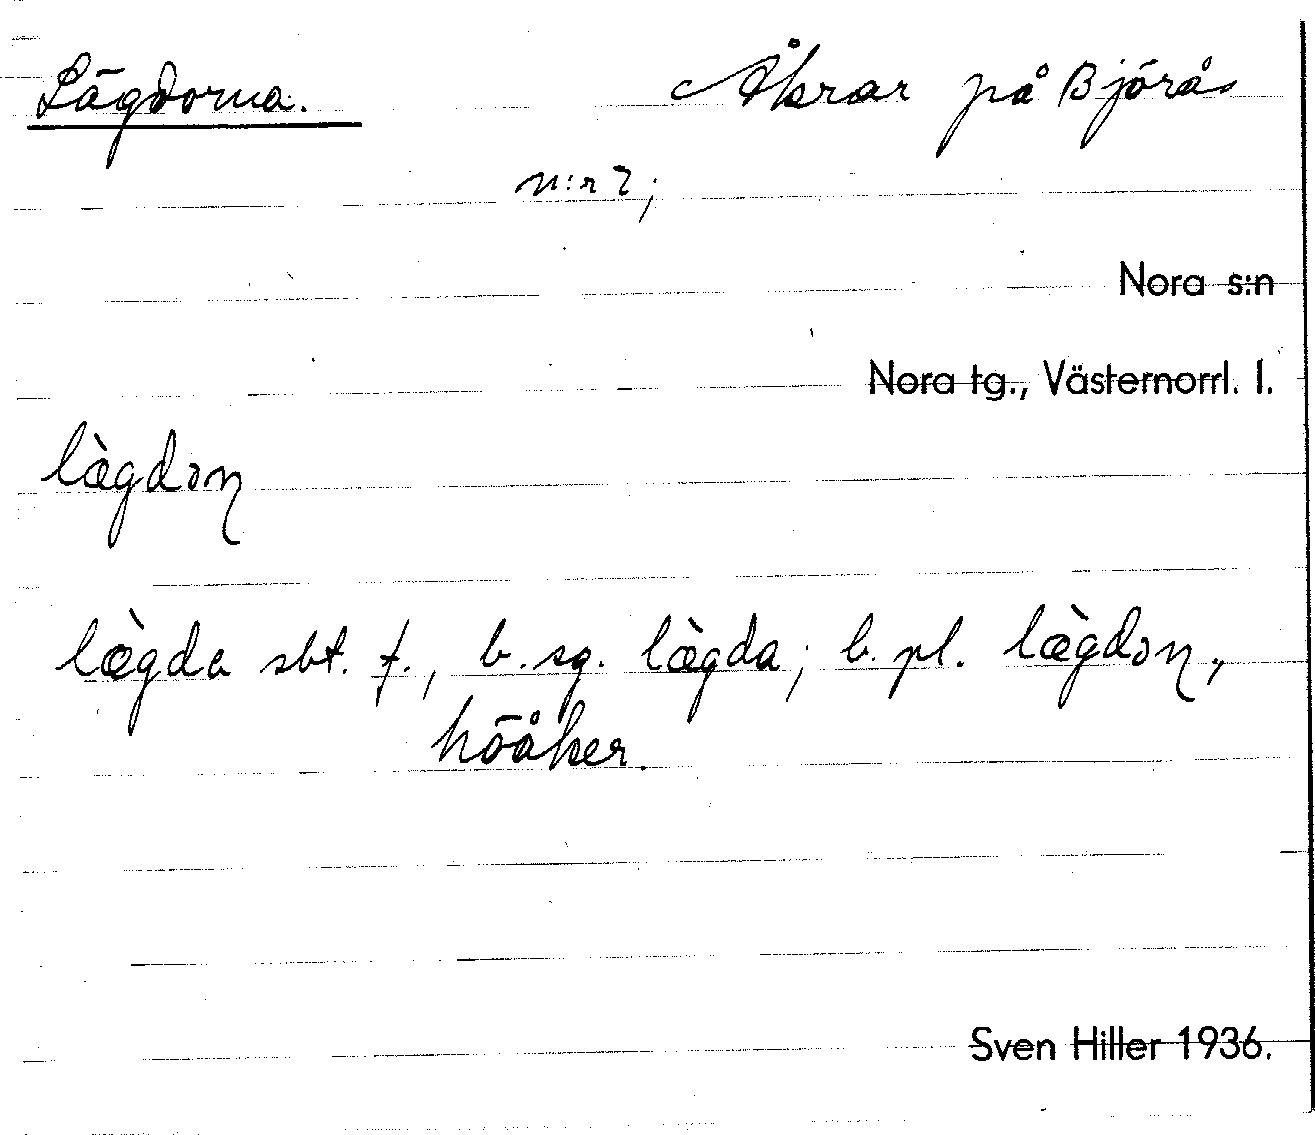 Lägdorna. Åkrar på Björås
n:r 2;
Nora s:n
Nora tg., Västernorrl. l.
lægdɔɳ
lægda sbt. f., b. sg. lægda; b. pl. lægdɔɳ,
höåker.
Sven Hiller 1936.